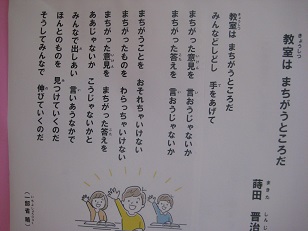 教室は まちがうところだ
蒔田 晋治
教室はまちがうところだ
みんなどしどし 手をあげて
まちがった意見を 言おうじゃないか
まちがった答えを 言おうじゃないか
まちがうことを おそれちゃいけない
まちがったものを わらっちゃいけない
まちがった意見を まちがった答えを
ああじゃないか こうじゃないかと
みんなで出しあい 言いあうなかで
ほんとのものを 見つけていくのだ
そうしてみんなで 伸びていくのだ
(一部省略)